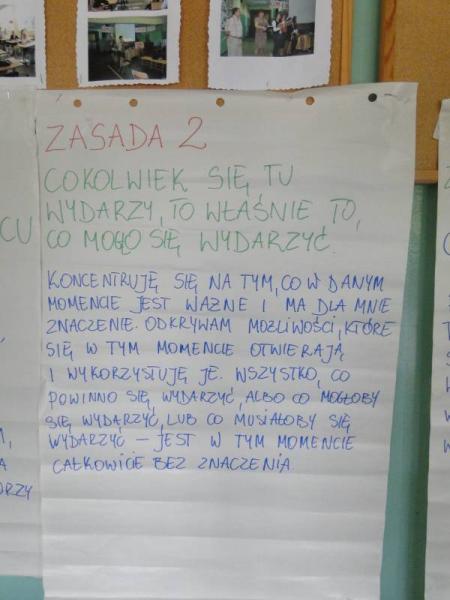 ZASADA 2
COKOLWIEK SIĘ TU
WYDARZY, TO WŁAŚNIE TO,
CO MOGŁO SIĘ WYDARZYĆ.
KONCENTRUJĘ SIĘ NA TYM, CO W DANYM
MOMENCIE JEST WAŻNE I MA DLA MNIE
ZNACZENIE. ODKRYWAM MOŻLIWOŚCI, KTÓRE
SIĘ W TYM MOMENCIE OTWIERAJĄ
I WYKORZYSTUJĘ JE. WSZYSTKO, CO
POWINNO SIĘ WYDARZYĆ, ALBO CO MOGŁOBY
SIĘ WYDARZYĆ, LUB CO MUSIAŁOBY SIĘ
WYDARZYĆ – JEST W TYM MOMENCIE
CAŁKOWICIE BEZ ZNACZENIA
CU